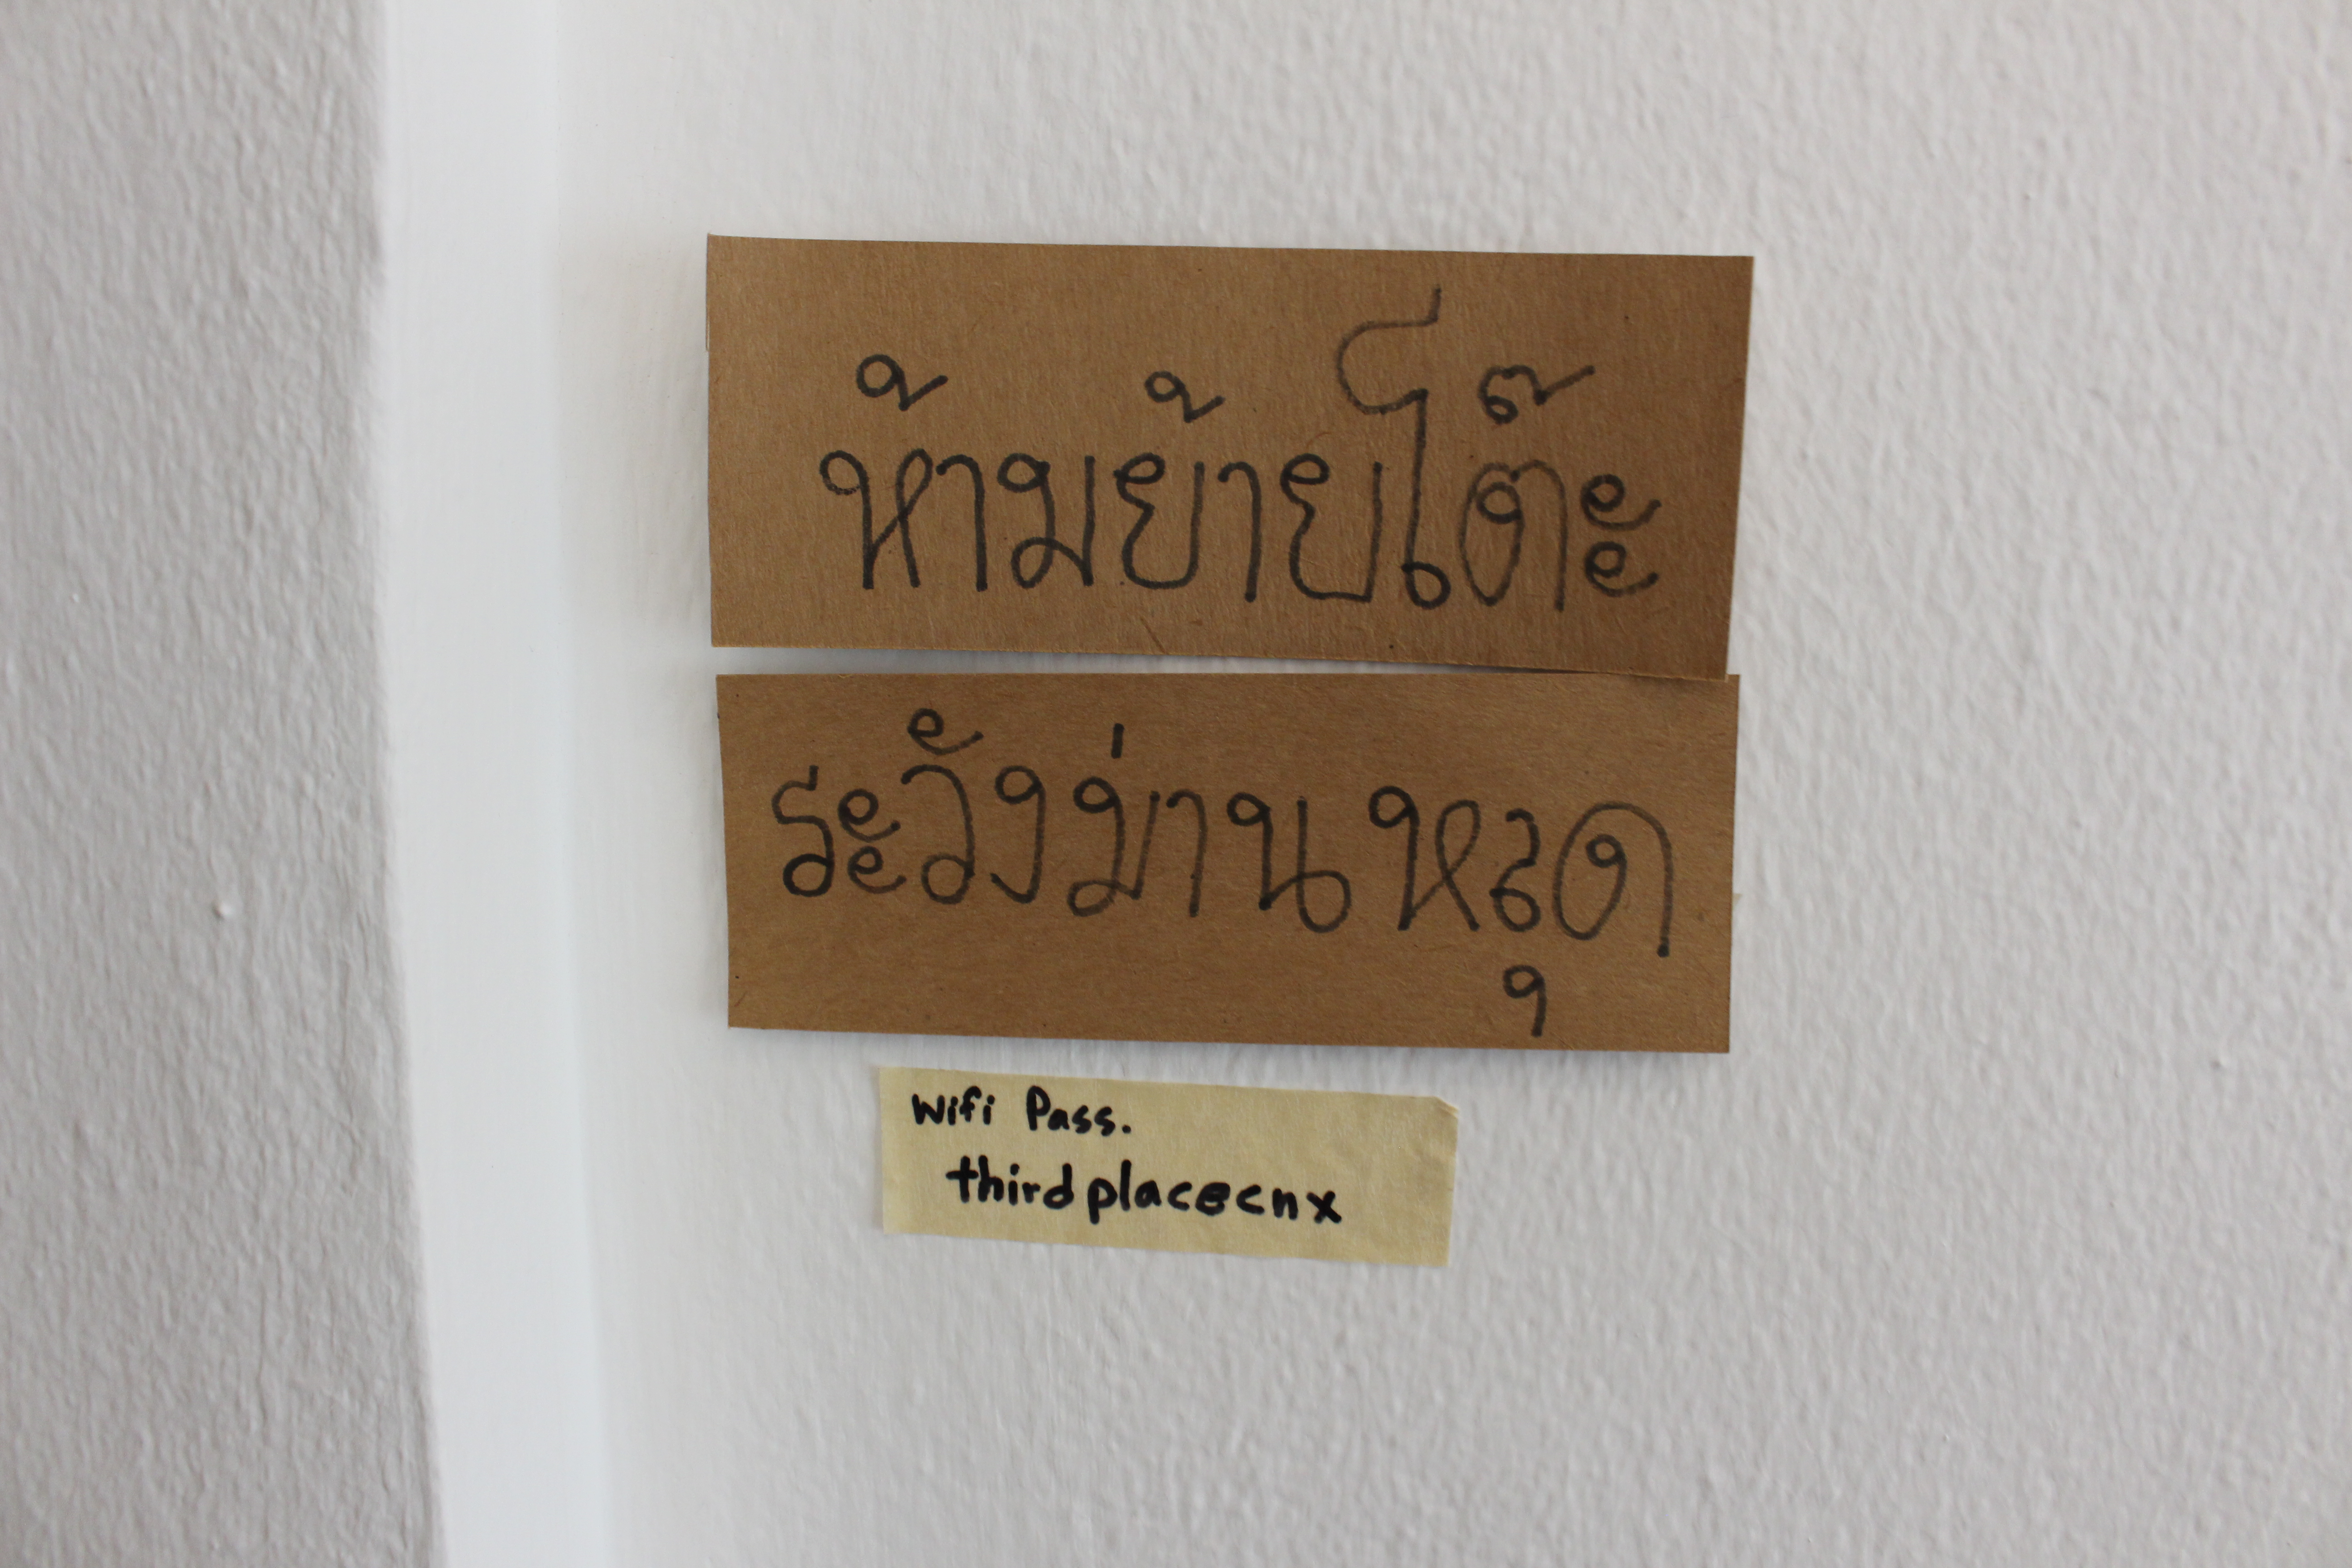 ห้ามย้ายโต๊ะ
ระวังม่านหลุด
Wifi Pass.
thirdplacecnx